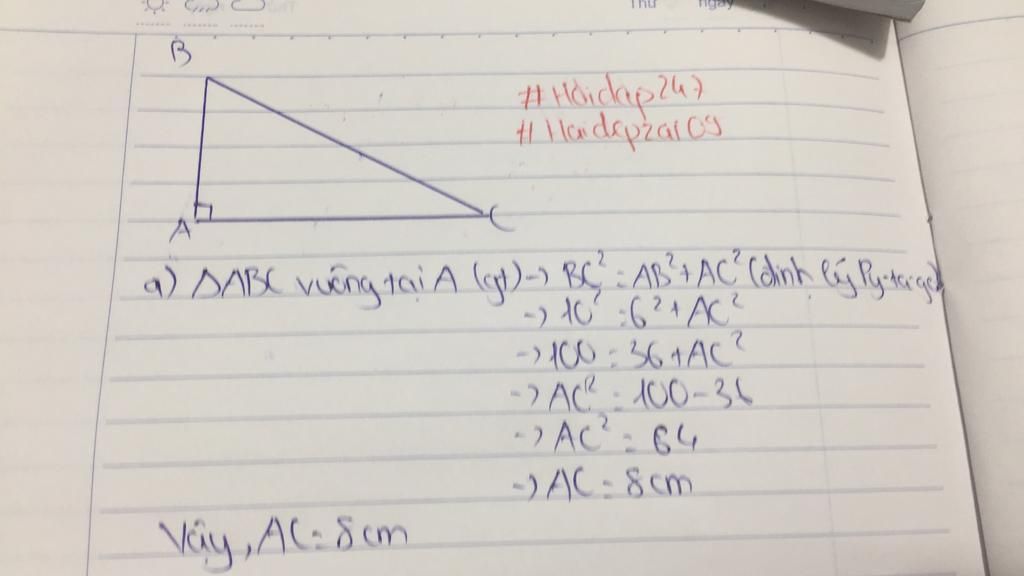 Thứ ngày
B
#Hoidap247
A
C
a) ΔABC vuông tại A (gt) → BC² = AB² + AC² (định lý Py-ta-go)
→ 10² = 6² + AC²
→ 100 = 36 + AC²
→ AC² = 100 - 36
→ AC² = 64
→ AC = 8cm
Vậy, AC = 8cm